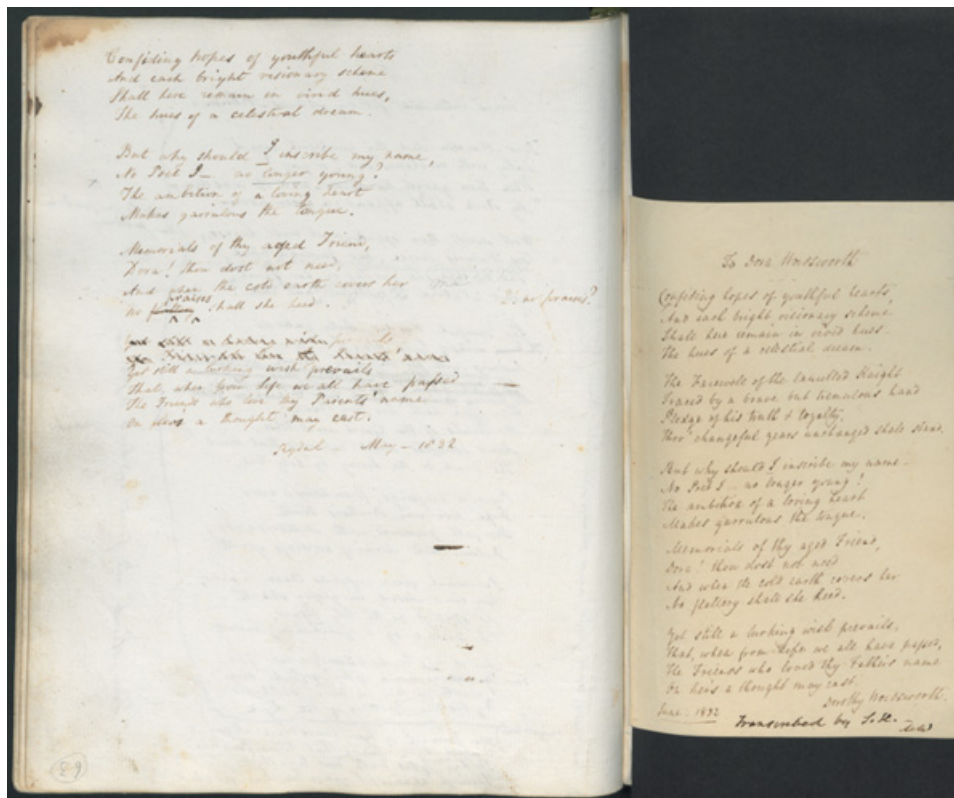 Confiding hopes of youthful hearts
And each bright visionary scheme
Shall here remain in vivid hues,
The hues of a celestial dream.
But why should I inscribe my name,
No Poet I — no longer young?
The ambition of a loving heart
Makes garrulous the tongue.
Memorials of thy aged Friend,
Dora! thou dost not need,
And when the cold earth covers her
praises
No flattery shall she heed.
no praises?
Yet still a lurking wish prevails
That, when from Life we all have passed
The Friends who love thy Parents' name
On her's a thought may cast.
Rydal — May — 1832
63
To Dora Wordsworth
Confiding hopes of youthful hearts,
And each bright visionary scheme
Shall here remain in vivid hues
The hues of a celestial dream.
The Farewell of the laurelled Knight
Traced by a brave but tremulous hand
Pledge of his truth & loyalty,
Thro' changeful years unchanged shall stand.
But why should I inscribe my name —
No Poet I — no longer young?
The ambition of a loving heart
Makes garrulous the tongue.
Memorials of thy aged Friend,
Dora! thou dost not need
And when the cold earth covers her
No flattery shall she heed.
Yet still a lurking wish prevails,
That, when from Life we all have passed,
The Friends who loved thy Father's name
On her's a thought may cast.
Dorothy Wordsworth.
June 1832
Transcribed by